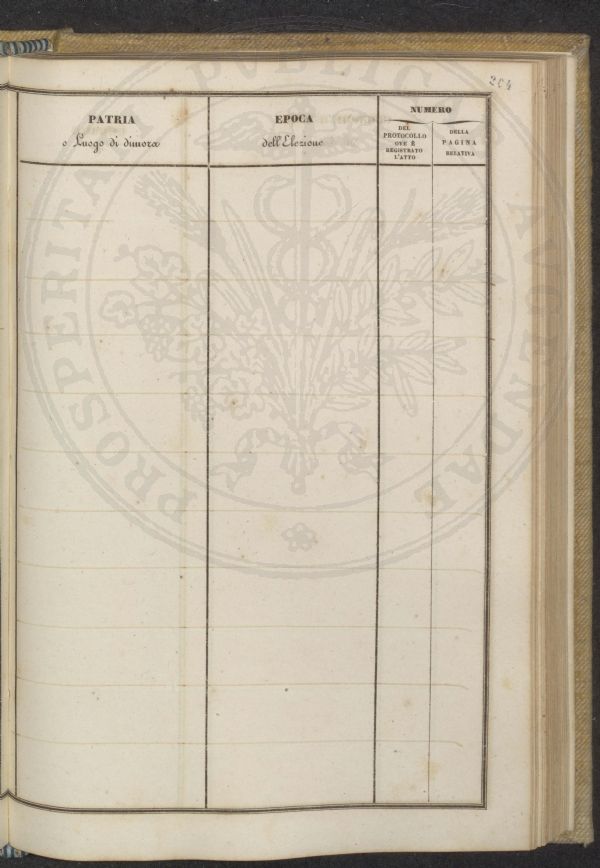 204
PATRIA
o Luogo di dimora
EPOCA
dell'Elezione
NUMERO
DEL
PROTOCOLLO
OVE È
REGISTRATO
L'ATTO
DELLA
PAGINA
RELATIVA
PROSPERITATI PUBLICAE AUGENDAE